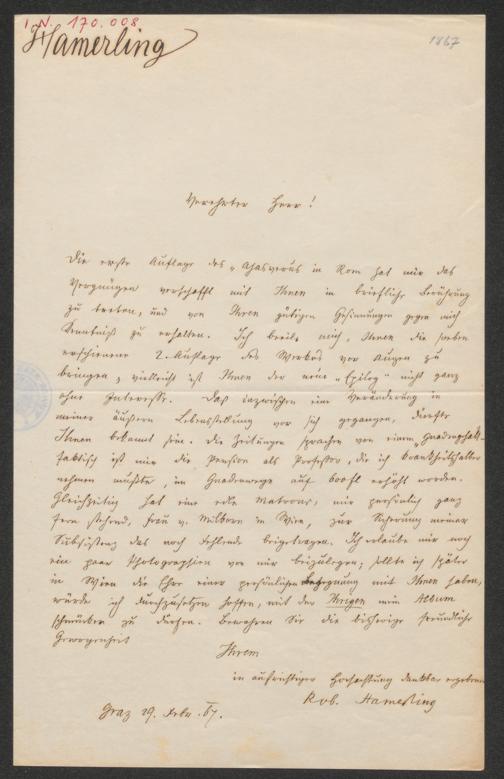 I. N. 170.008
Hamerling
1867
Verehrter Herr!
Die erste Auflage des „Ahasverus in Rom hat mir das
Vergnügen verschafft mit Ihnen in briefliche Berührung
zu treten, und von Ihren gütigen Gesinnungen gegen mich
Kenntniß zu erhalten. Ich beeile mich, Ihnen die soeben
erschienene 2. Auflage des Werkes vor Augen zu
bringen, vielleicht ist Ihnen der neue „Epilog" nicht ganz
ohne Interesse. Daß inzwischen eine Veränderung in
meiner äußern Lebensstellung vor sich gegangen, dürfte
Ihnen bekannt sein. Die Zeitungen sprachen von einem „Gnadengehalt
faktisch ist mir die Pension als Professor, die ich krankheitshalber
nehmen mußte, im Gnadenwege auf 600 fl erhöht worden.
Gleichzeitig hat eine edle Matrone, mir persönlich ganz
fern stehend, Frau v. Milborn in Wien, zur Sicherung meiner
Subsistenz das noch Fehlende beigetragen. Ich erlaube mir noch
ein paar Photographien von mir beizulegen; sollte ich später
in Wien die Ehre einer persönlichen Begegnung mit Ihnen haben,
würde ich durchzusetzen hoffen, mit der Ihrigen mein Album
schmücken zu dürfen. Bewahren Sie die bisherige freundliche
Gewogenheit
Ihrem
in aufrichtiger Hochachtung dankbar ergebenen
Rob. Hamerling
Graz 29. Febr. 67.